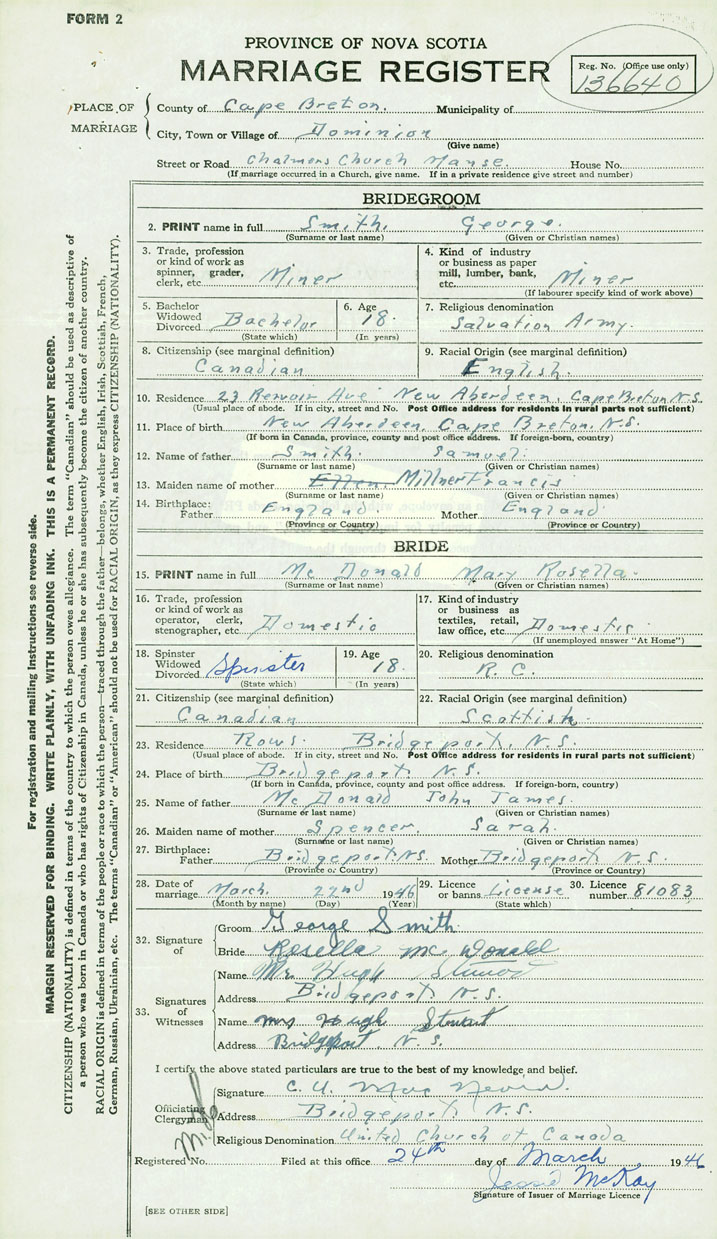 FORM 2
PROVINCE OF NOVA SCOTIA
MARRIAGE REGISTER
Reg. No. (Office use only)
136640
PLACE OF MARRIAGE
County of Cape Breton. Municipality of
City, Town or Village of Dominion
(Give name)
Street or Road Chalmers Church Manse. House No.
(If marriage occurred in a Church, give name. If in a private residence give street and number)
BRIDEGROOM
2. PRINT name in full Smith. George.
(Surname or last name) (Given or Christian names)
3. Trade, profession or kind of work as spinner, grader, clerk, etc. Miner
4. Kind of industry or business as paper mill, lumber, bank, etc. Miner
(If labourer specify kind of work above)
5. Bachelor Widowed Divorced Bachelor
(State which)
6. Age 18.
(In years)
7. Religious denomination
Salvation Army.
8. Citizenship (see marginal definition)
Canadian
9. Racial Origin (see marginal definition)
English.
10. Residence 23 Ave New Aberdeen, Cape Breton N.S.
(Usual place of abode. If in city, street and No. Post Office address for residents in rural parts not sufficient)
11. Place of birth New Aberdeen, Cape Breton, N.S.
(If born in Canada, province, county and post office address. If foreign-born, country)
12. Name of father Smith. Samuel.
(Surname or last name) (Given or Christian names)
13. Maiden name of mother Ellen Millner Francis
(Surname or last name) (Given or Christian names)
14. Birthplace: Father England. Mother England.
(Province or Country) (Province or Country)
BRIDE
15. PRINT name in full Mc Donald Mary Rosella.
(Surname or last name) (Given or Christian names)
16. Trade, profession or kind of work as operator, clerk, stenographer, etc. Domestic
17. Kind of industry or business as textiles, retail, law office, etc. Domestic
(If unemployed answer "At Home")
18. Spinster Widowed Divorced Spinster
(State which)
19. Age 18.
(In years)
20. Religious denomination
R. C.
21. Citizenship (see marginal definition)
Canadian
22. Racial Origin (see marginal definition)
Scottish.
23. Residence Rows. Bridgeport, N.S.
(Usual place of abode. If in city, street and No. Post Office address for residents in rural parts not sufficient)
24. Place of birth Bridgeport, N.S.
(If born in Canada, province, county and post office address. If foreign-born, country)
25. Name of father Mc Donald John James.
(Surname or last name) (Given or Christian names)
26. Maiden name of mother Spencer. Sarah.
(Surname or last name) (Given or Christian names)
27. Birthplace: Father Bridgeport N.S. Mother Bridgeport, N.S.
(Province or Country) (Province or Country)
28. Date of marriage March. 22nd 1946
(Month by name) (Day) (Year)
29. Licence or banns License
(State which)
30. Licence number 81083
32. Signature of
Groom George Smith.
Bride Rosella Mc Donald
33. Signatures of Witnesses
Name Mr. Hugh Stewart
Address Bridgeport, N.S.
Name Mrs Hugh Stewart
Address Bridgeport, N.S.
I certify the above stated particulars are true to the best of my knowledge and belief.
Officiating Clergyman
Signature C. U.
Address Bridgeport, N.S.
Religious Denomination United Church of Canada
Registered No. Filed at this office 24th day of March 1946
Jessie McKay
Signature of Issuer of Marriage Licence
[SEE OTHER SIDE]
For registration and mailing instructions see reverse side.
MARGIN RESERVED FOR BINDING. WRITE PLAINLY, WITH UNFADING INK. THIS IS A PERMANENT RECORD.
CITIZENSHIP (NATIONALITY) is defined in terms of the country to which the person owes allegiance. The term "Canadian" should be used as descriptive of
a person who was born in Canada or who has rights of Citizenship in Canada, unless he or she has subsequently become the citizen of another country.
RACIAL ORIGIN is defined in terms of the people or race to which the person—traced through the father—belongs, whether English, Irish, Scottish, French,
German, Russian, Ukrainian, etc. The terms "Canadian" or "American" should not be used for RACIAL ORIGIN, as they express CITIZENSHIP (NATIONALITY).